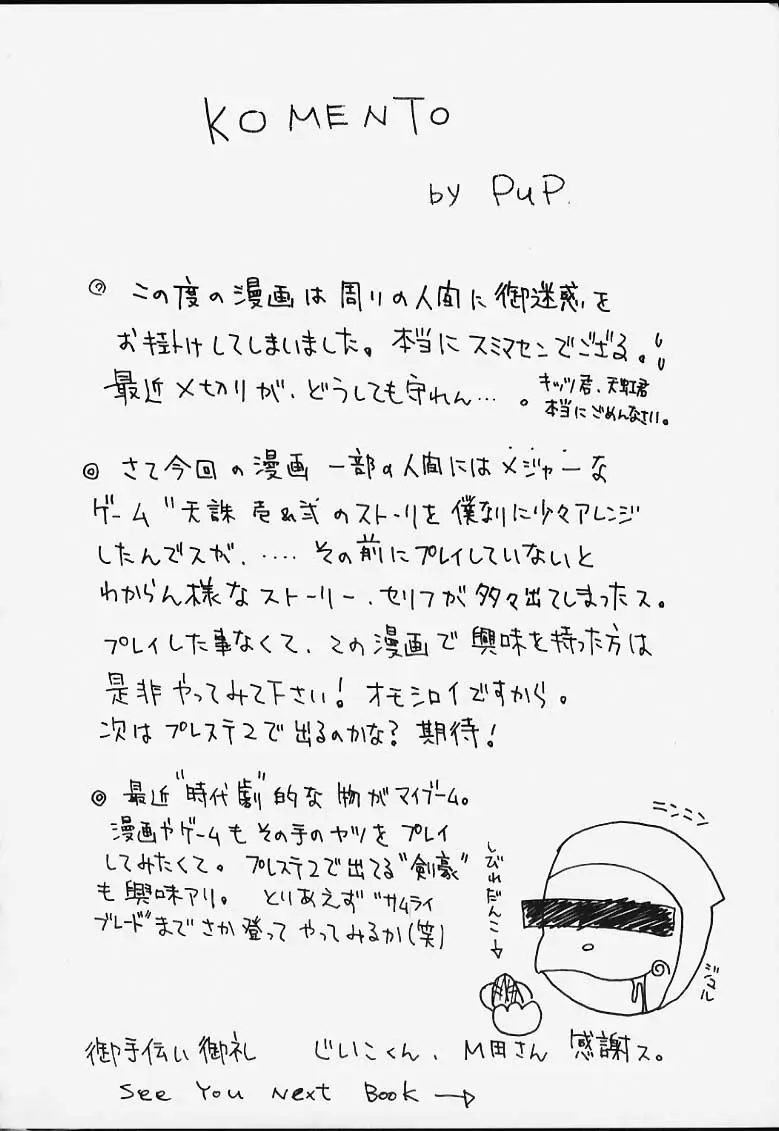 KOMENTO
by PuP.
◎ この度の漫画は周りの人間に御迷惑を
お掛けしてしまいました。本当にスミマセンでござる。
最近〆切りが、どうしても守れん…。
キッツ君、天虹君
本当にごめんなさい。
◎ さて今回の漫画 一部の人間にはメジャーな
ゲーム"天誅 壱&弐のストーリを僕なりに少々アレンジ
したんでスが、‥‥その前にプレイしていないと
わからん様なストーリー、セリフが多々出てしまったス。
プレイした事なくて、この漫画で興味を持った方は
是非やってみて下さい！オモシロイですから。
次はプレステ2で出るのかな？期待！
◎ 最近"時代劇"的な物がマイブーム。
漫画やゲームもその手のヤツをプレイ
してみたくて。プレステ2で出てる"剣豪"
も興味アリ。とりあえず"サムライ
ブレード"までさか登ってやってみるか(笑)
ニンニン
しびれだんご
ジュル
御手伝い御礼 じいこくん、M田さん 感謝ス。
See You Next Book →